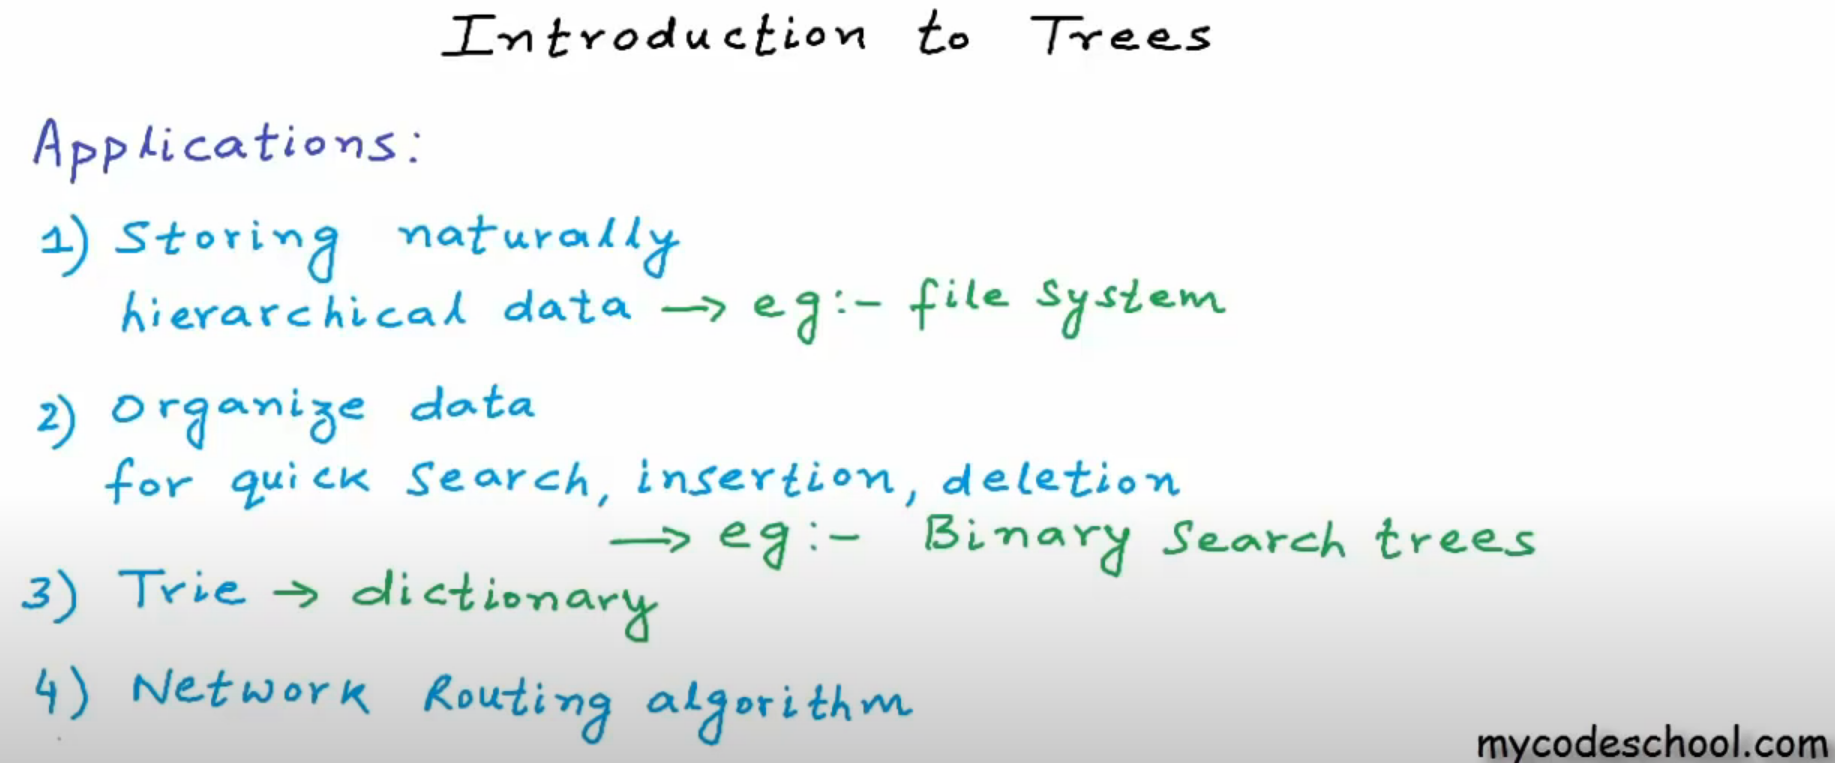 Introduction to Trees
Applications:
1) Storing naturally
hierarchical data → eg:- file system
2) Organize data
for quick search, insertion, deletion
→ eg:- Binary Search trees
3) Trie → dictionary
4) Network Routing algorithm
mycodeschool.com